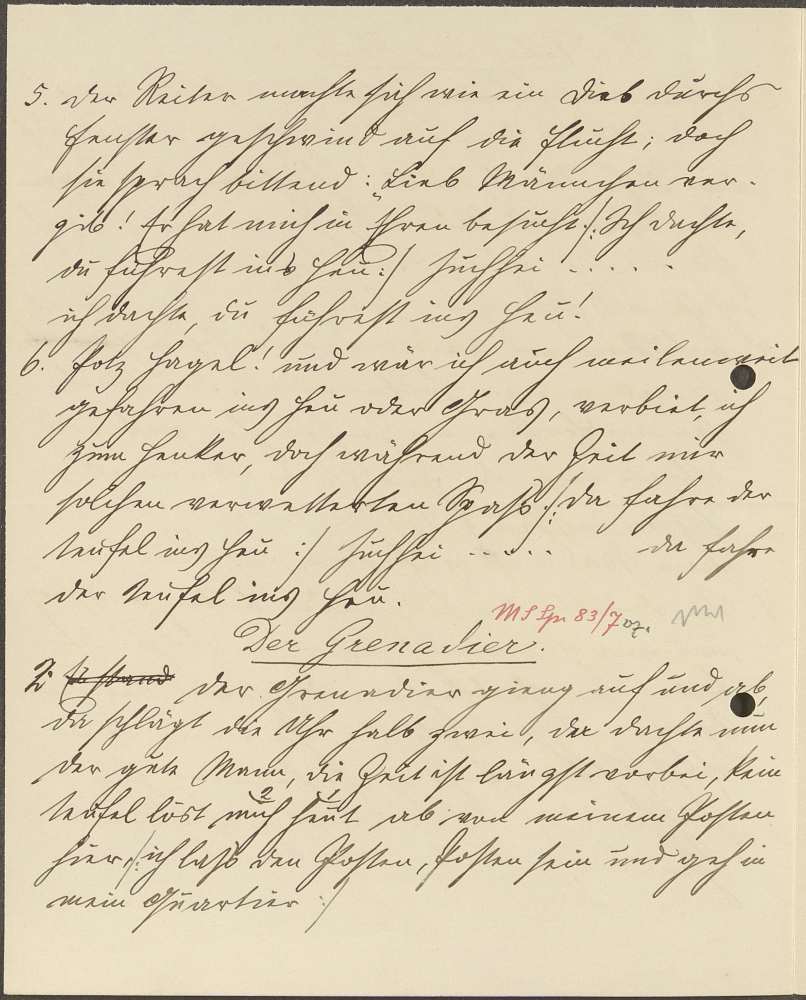 5. Der Reiter machte sich wie ein Dieb durchs
Fenster geschwind auf die Flucht; doch
sie sprach bittend: „Lieb Männchen ver-
gib! Er hat mich in Ehren besucht /: Ich dachte,
du führest ins Heu :/ Juchhei . . . . .
ich dachte, du führest ins Heu!
6. Potz Hagel! und wär ich auch meilenweit
gefahren ins Heu oder Gras, verbiet, ich
zum Henker, doch während der Zeit mir
solchen verwetterten Spaß /: Da fahre der
Teufel ins Heu :/ Juchhei . . . . . da fahre
der Teufel ins Heu.
MS Sp. 83/7
Der Grenadier.
2. Der Grenadier gieng auf und ab,
da schlägt die Uhr halb zwei, da dachte nun
der gute Mann, die Zeit ist längst vorbei, kein
Teufel löst mich 2 heut 1 ab von meinem Posten
hier, /: ich laß den Posten, Posten sein und geh in
mein Quartier :/